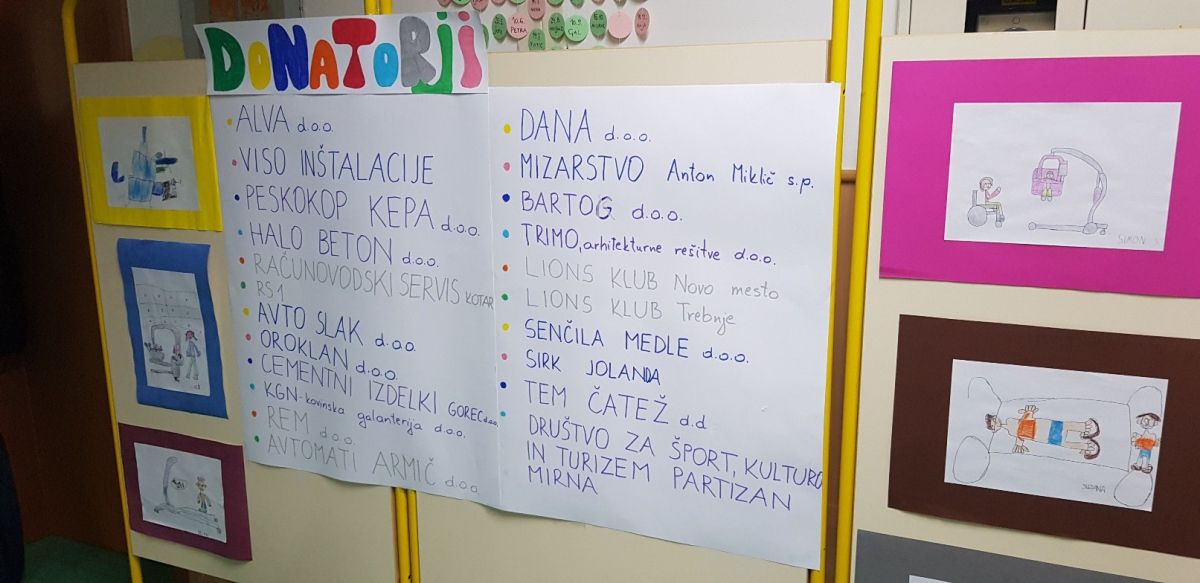 DONATORJI
ALVA d.o.o.
VISO INŠTALACIJE
PESKOKOP KEPA d.o.o.
HALO BETON d.o.o.
RAČUNOVODSKI SERVIS KOTAR
RS1
AVTO SLAK d.o.o.
OROKLAN d.o.o.
CEMENTNI IZDELKI GOREC d.o.o.
KGN-kovinska galanterija d.o.o.
REM d.o.o.
AVTOMATI ARMIČ d.o.o.
DANA d.o.o.
MIZARSTVO Anton Miklič s.p.
BARTOG d.o.o.
TRIMO, arhitekturne rešitve d.o.o.
LIONS KLUB Novo mesto
LIONS KLUB Trebnje
SENČILA MEDLE d.o.o.
SIRK JOLANDA
TEM ČATEŽ d.d.
DRUŠTVO ZA ŠPORT, KULTURO
IN TURIZEM PARTIZAN
MIRNA
PETRA
GAL
SIMON
SUZANA